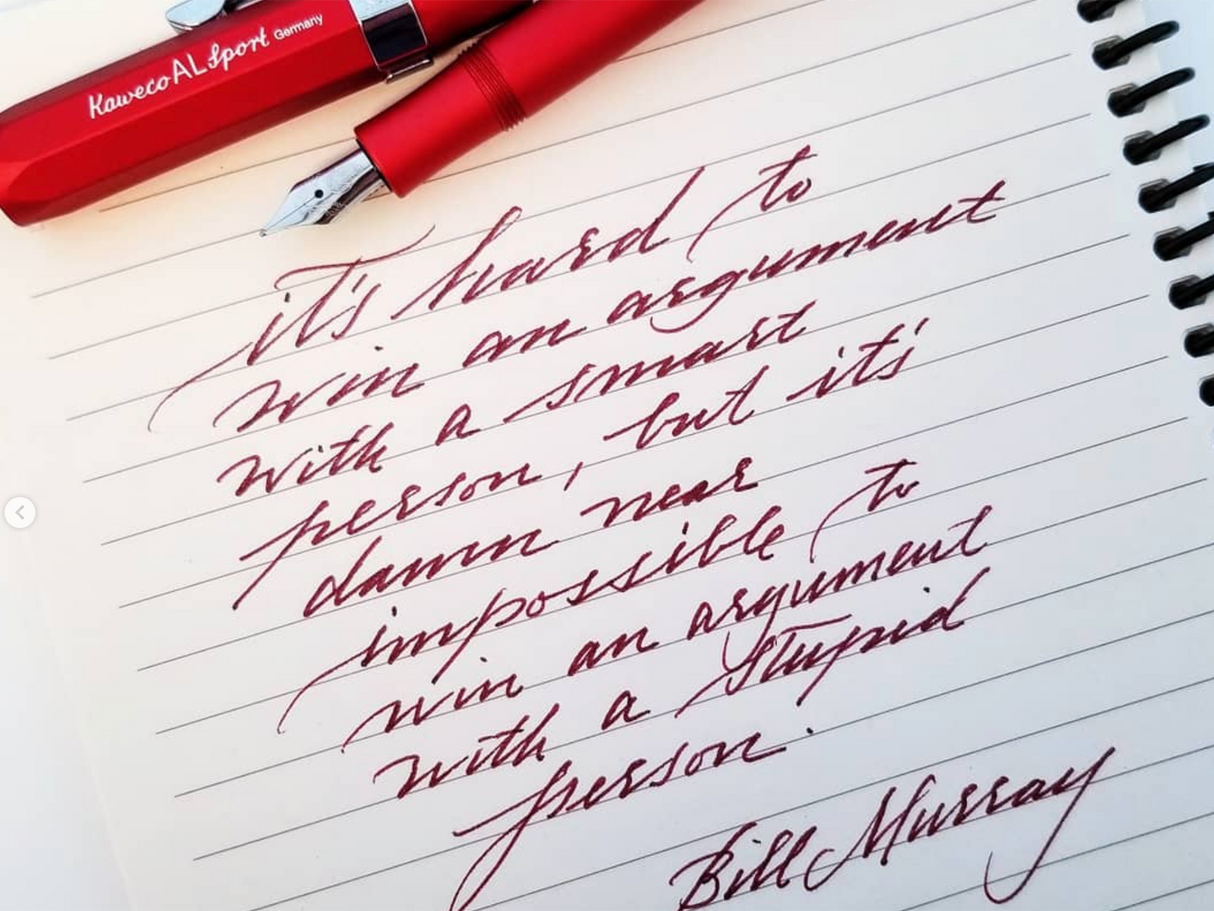 Kaweco AL Sport Germany
it's hard to
win an argument
with a smart
person, but it's
damn near
impossible to
win an argument
with a stupid
person.
Bill Murray